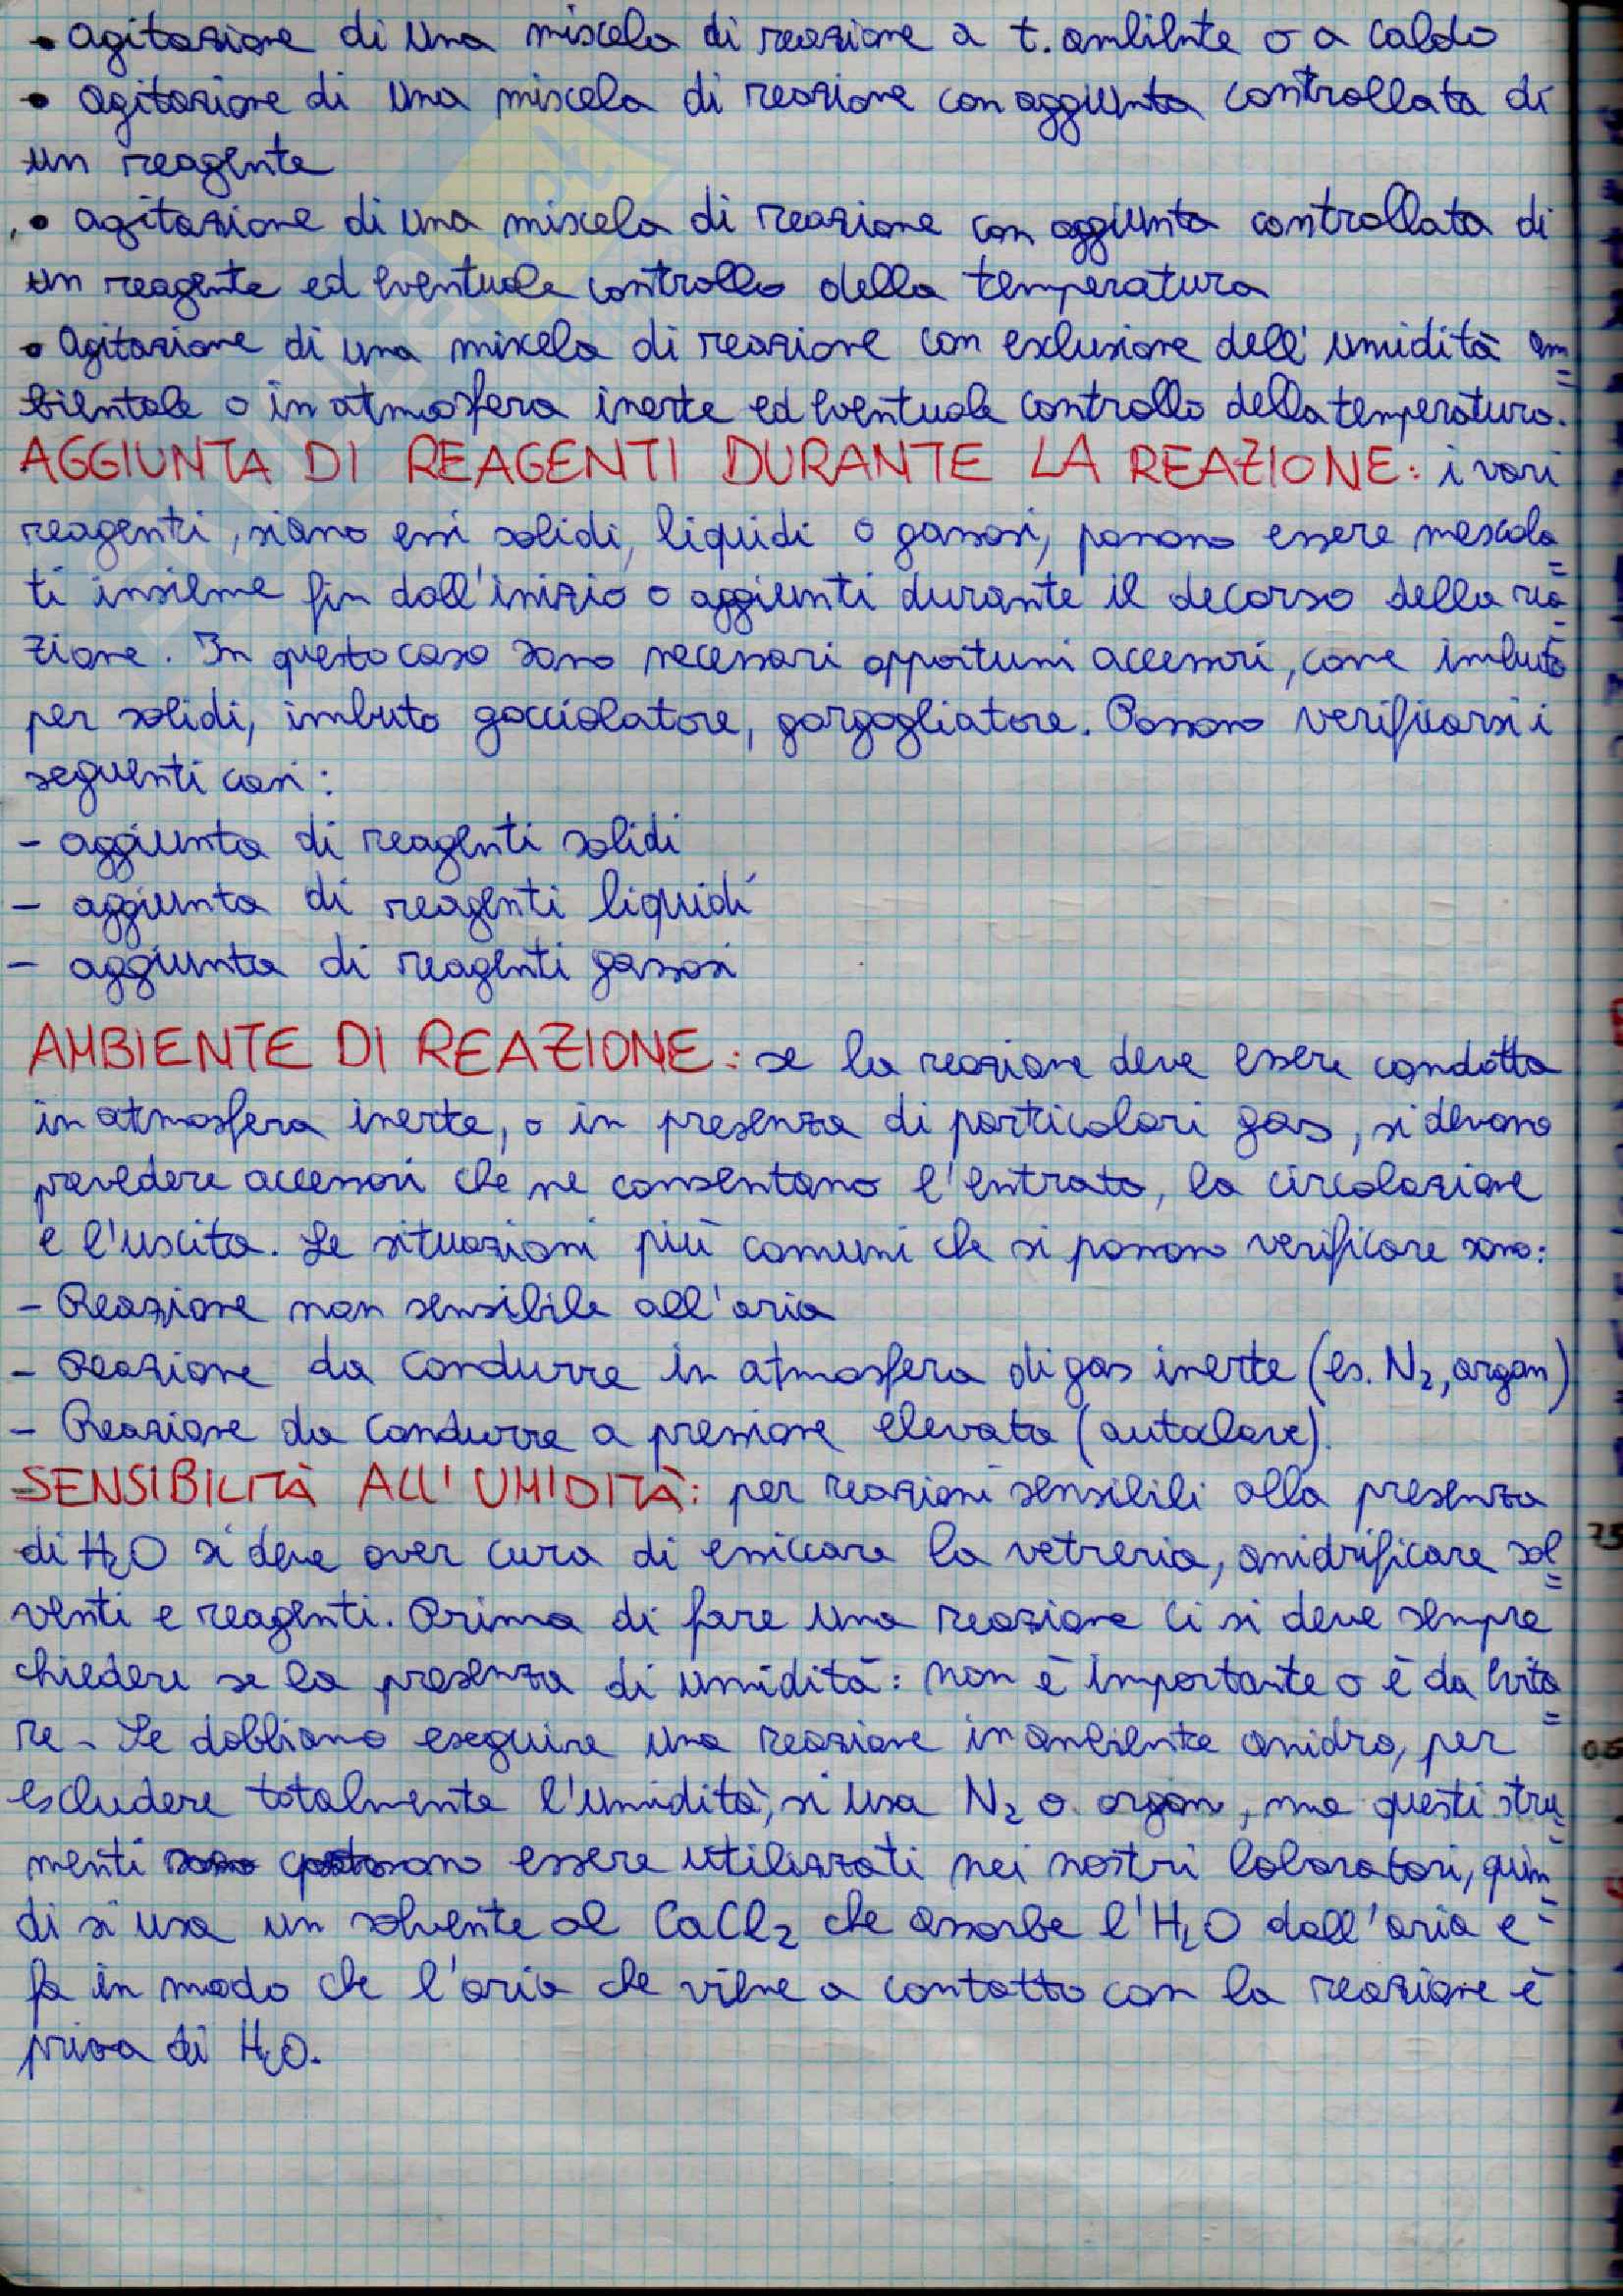 • agitazione di una miscela di reazione a t. ambiente o a caldo
• agitazione di una miscela di reazione con aggiunta controllata di
un reagente
• agitazione di una miscela di reazione con aggiunta controllata di
un reagente ed eventuale controllo della temperatura
• Agitazione di una miscela di reazione con esclusione dell'umidità am=
bientale o in atmosfera inerte ed eventuale controllo della temperatura.
AGGIUNTA DI REAGENTI DURANTE LA REAZIONE: i vari
reagenti, siano essi solidi, liquidi o gassosi, possono essere mescola=
ti insieme fin dall'inizio o aggiunti durante il decorso della rea=
zione. In questo caso sono necessari opportuni accessori, come imbuto
per solidi, imbuto gocciolatore, gorgogliatore. Possono verificarsi i
seguenti casi:
- aggiunta di reagenti solidi
- aggiunta di reagenti liquidi
- aggiunta di reagenti gassosi
AMBIENTE DI REAZIONE: se la reazione deve essere condotta
in atmosfera inerte, o in presenza di particolari gas, si devono
prevedere accessori che ne consentano l'entrata, la circolazione
e l'uscita. Le situazioni più comuni che si possono verificare sono:
- Reazione non sensibile all'aria
- Reazione da condurre in atmosfera di gas inerte (es. N₂, argon)
- Reazione da condurre a pressione elevata (autoclave).
SENSIBILITÀ ALL'UMIDITÀ: per reazioni sensibili alla presenza
di H₂O si deve aver cura di essiccare la vetreria, anidrificare sol=
venti e reagenti. Prima di fare una reazione ci si deve sempre
chiedere se la presenza di umidità: non è importante o è da evita=
re. Se dobbiamo eseguire una reazione in ambiente anidro, per
escludere totalmente l'umidità, si usa N₂ o argon, ma questi stru=
menti essere utilizzati nei nostri laboratori, quin=
di si usa un solvente al CaCl₂ che assorbe l'H₂O dall'aria e
fa in modo che l'aria che viene a contatto con la reazione è
priva di H₂O.